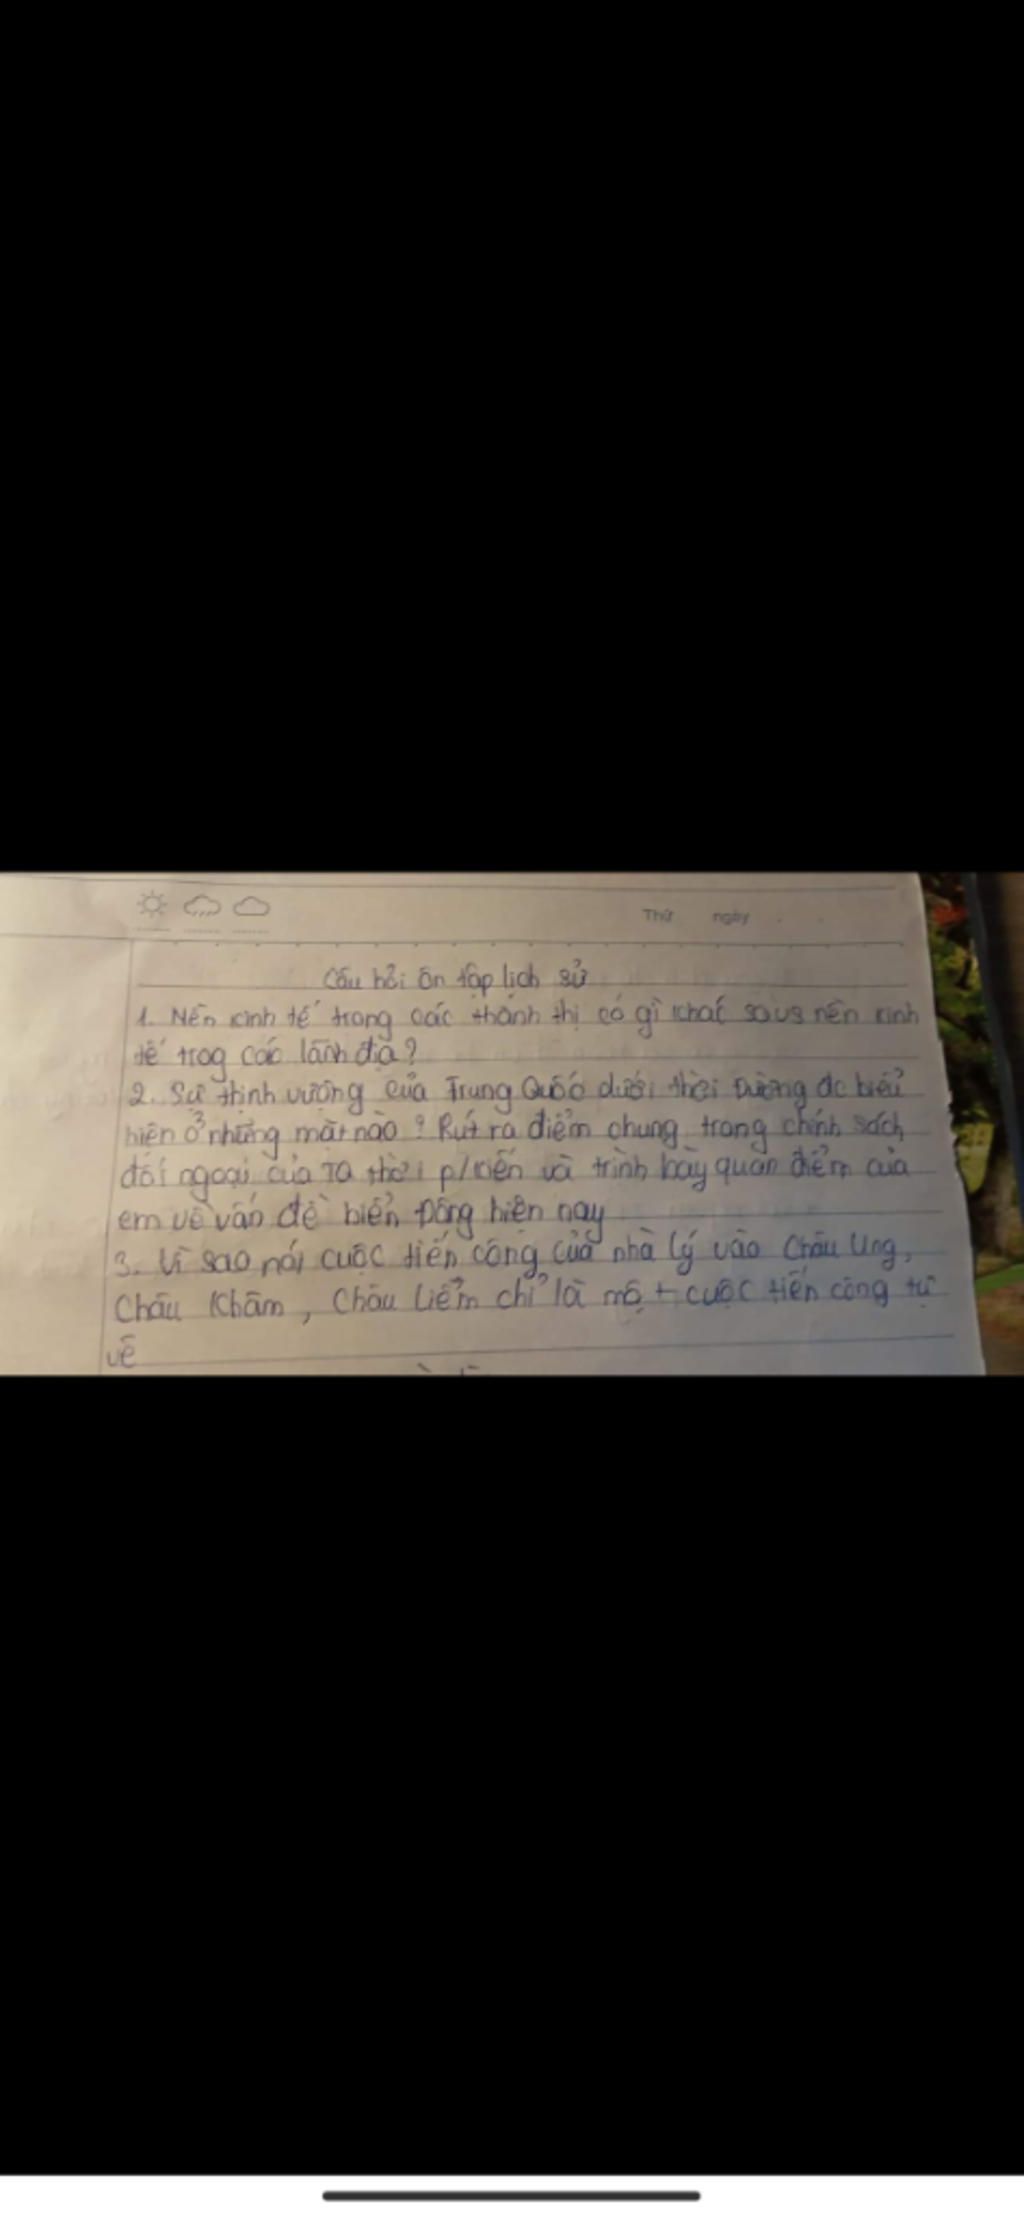 Thứ ngày
Câu hỏi ôn tập lịch sử
1. Nền kinh tế trong các thành thị có gì khác so vs nền kinh
tế trog các lãnh địa?
2. Sự thịnh vượng của Trung Quốc dưới thời Đường đc biểu
hiện ở những mặt nào? Rút ra điểm chung trong chính sách
đối ngoại của TQ thời p/kiến và trình bày quan điểm của
em về vấn đề biển Đông hiện nay
3. Vì sao nói cuộc tiến công của nhà Lý vào Châu Ung,
Châu Khâm, Châu Liêm chỉ là một cuộc tiến công tự
vệ